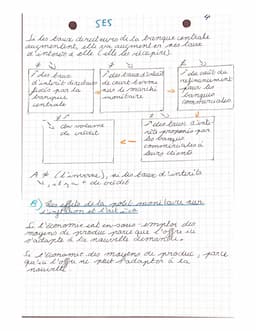 4
SES
Si les taux directeurs de la banque centrale
augmentent, elle va augmenter ses taux
d'intérêt à elle (elle les récupère).
↗ des taux
d'intérêt directeurs
fixés par la
banque
centrale
↗ des taux d'intérêt
de court terme
sur le marché
monétaire
↗ du coût du
refinancement
pour les
banques
commerciales.
↘ du volume
de crédit
↗ des taux d'inté
rêts proposés par
les banques
commerciales à
leurs clients
A ≠ (l'inverse), si des taux d'intérêts
+ de crédit
B) Les effets de la polit monétaire sur
l'inflation et
Si l'économie est en sous-emploi des
moyens de produc parce que l'offre va
s'adapter à la nouvelle demande.
Si l'économie des moyens de produc, parce
qu'ici l'offre ne peut s'adapter à la
nouvelle